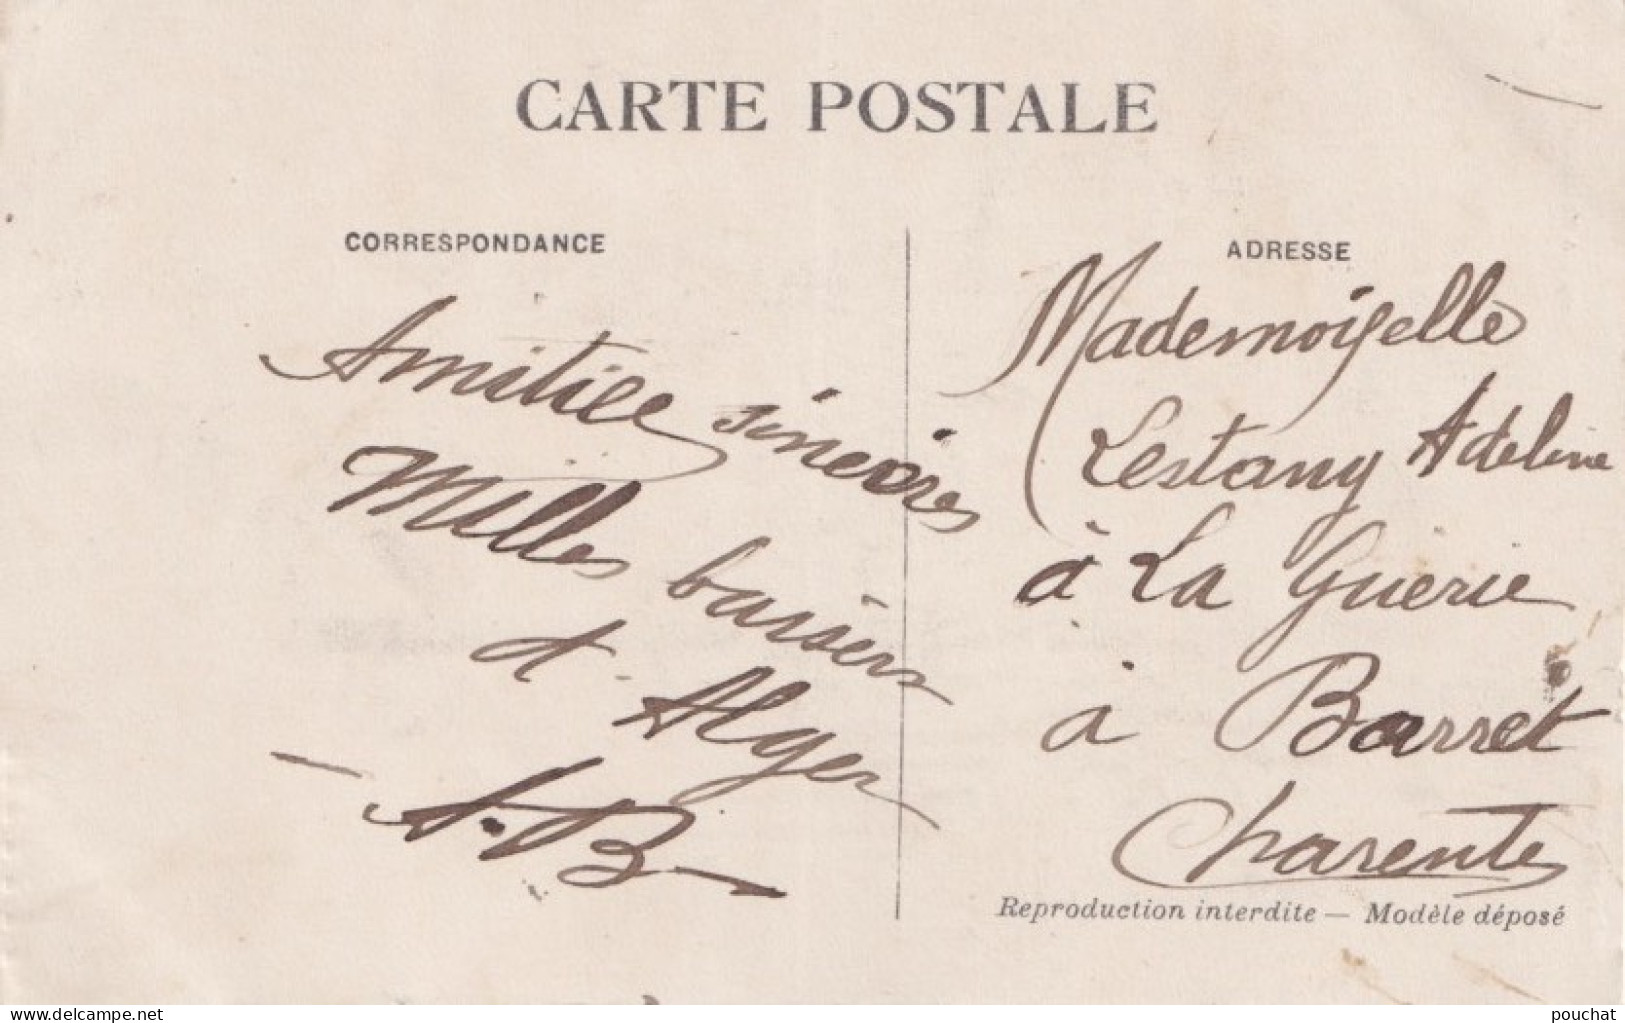 CARTE POSTALE
CORRESPONDANCE
Amitiée sincères
Milles baisers
d'Alger
A. B
ADRESSE
Mademoiselle
Lestany Adeline
à La Guerie
à Barret
Charente
Reproduction interdite — Modèle déposé
delcampe.net
pouchat